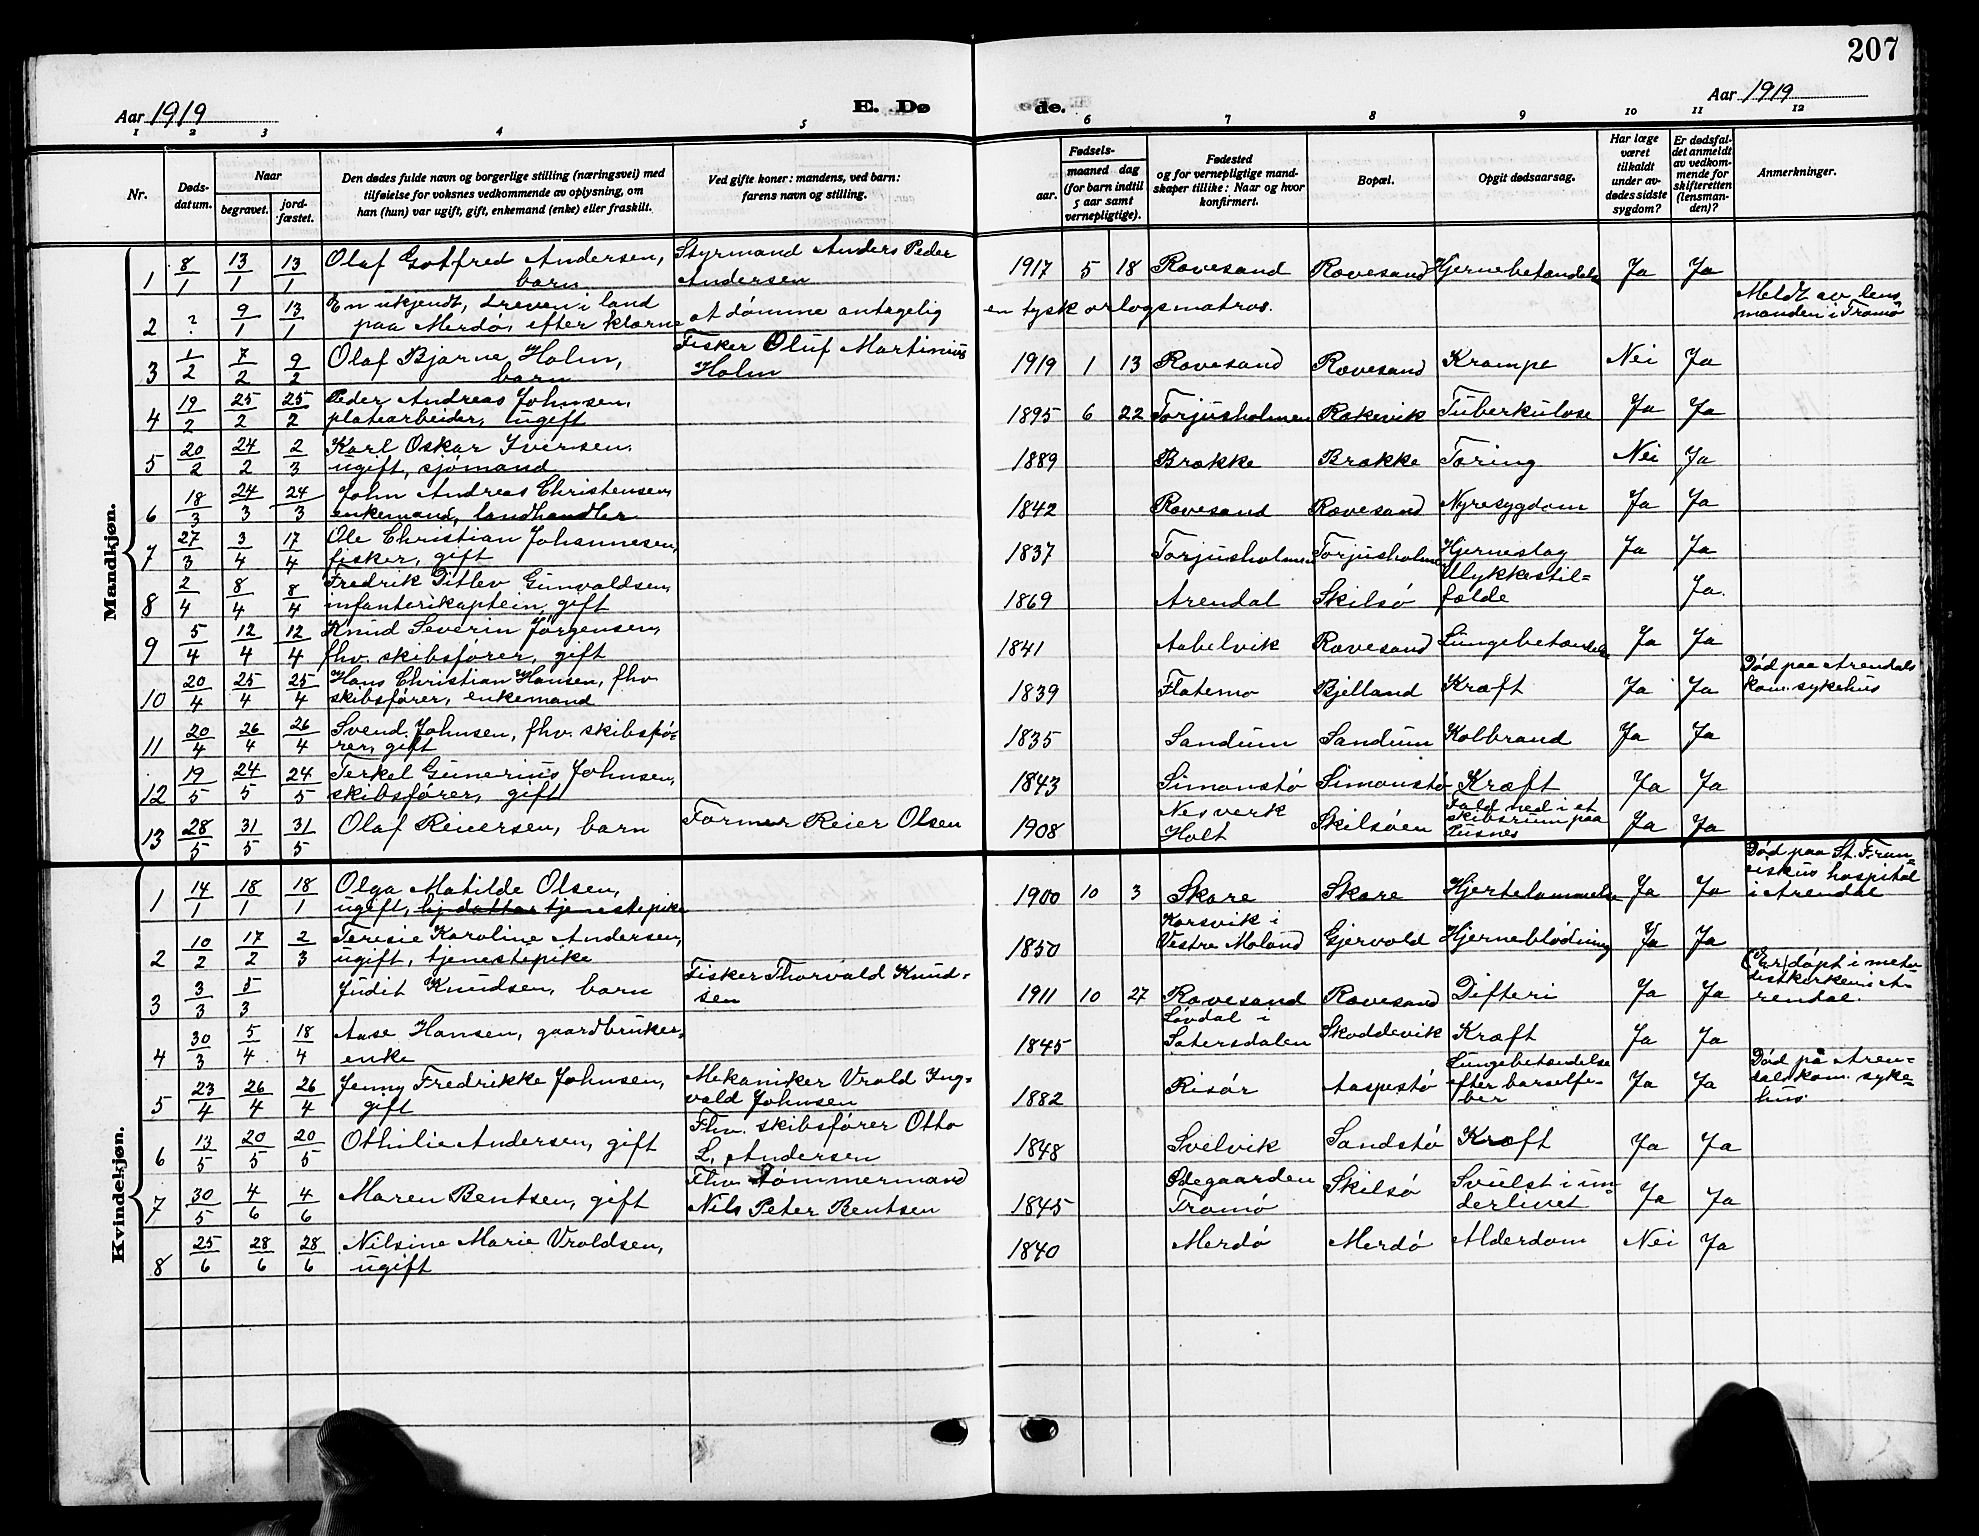 207
Aar 1919 E. Dø de. Aar 1919
1 2 3 4 5 6 7 8 9 10 11 12
Nr.
Døds-
datum.
Naar
begravet.
jord-
fæstet.
Den dødes fulde navn og borgerlige stilling (næringsvei) med
tilføielse for voksnes vedkommende av oplysning, om
han (hun) var ugift, gift, enkemand (enke) eller fraskilt.
Ved gifte koner: mandens, ved barn:
farens navn og stilling.
Fødsels-
aar.
maaned dag
(for barn indtil
5 aar samt
vernepligtige).
Fødested
og for vernepligtige mand-
skaper tillike: Naar og hvor
konfirmert.
Bopæl.
Opgit dødsaarsag.
Har læge
været
tilkaldt
under av-
dødes sidste
sygdom?
Er dødsfal-
det anmeldt
av vedkom-
mende for
skifteretten
(lensman-
den)?
Anmerkninger.
Mandkjøn.
1 8/1 13/1 13/1 Olaf Gotfred Andersen,
barn
Styrmand Anders Peder
Andersen
1917 5 18 Rævesand Rævesand Hjernebetændelse Ja Ja
2 ? 9/1 13/1 En ukjendt, dreven i land
paa Merdø, efter klærne
at dømme antagelig
en tysk orlogsmatros.
Meldt av lens
manden i Tromø
3 1/2 7/2 9/2 Olaf Bjarne Holm,
barn
Fisker Oluf Martinius
Holm
1919 1 13 Rævesand Rævesand Krampe Nei Ja
4 19/2 25/2 25/2 Peder Andreas Johnsen,
platearbeider, ugift
1895 6 22 Torjusholmen Rækevik Tuberkulose Ja Ja
5 20/2 24/2 2/3 Karl Oskar Iversen,
ugift, sjømand
1889 Brække Brække Tæring Nei Ja
6 18/3 24/3 24/3 John Andreas Christensen,
enkemand, landhandler
1842 Rævesand Rævesand Nyresygdom Ja Ja
7 27/3 3/4 17/4 Ole Christian Johannesen,
fisker, gift
1837 Torjusholmen Torjusholmen Hjerneslag Ja Ja
8 2/4 8/4 8/4 Fredrik Ditlev Gunvaldsen,
infanterikaptein, gift
1869 Arendal Skilsø Ulykkestil-
fælde
Ja
9 5/4 12/4 12/4 Knud Severin Jørgensen,
fhv. skibsfører, gift
1841 Aabelvik Rævesand Lungebetændelse Ja Ja
10 20/4 25/4 25/4 Hans Christian Hansen, fhv.
skibsfører, enkemand
1839 Flatemo Bjelland Kræft Ja Ja
Død paa Arendals
kom. sykehus
11 20/4 26/4 26/4 Svend Johnsen, fhv. skibsfø-
rer, gift
1835 Sandum Sandum Kolbrand Ja Ja
12 19/5 24/5 24/5 Terkel Gunerius Johnsen,
skibsfører, gift
1843 Simonstø Simonstø Kræft Ja Ja
13 28/5 31/5 31/5 Olaf Reiersen, barn
Former Reier Olsen
1908 Nesverk
Holt
Skilsøen
Fald ned i et
skibsrum paa
Pusnes
Ja Ja
Kvindekjøn.
1 14/1 18/1 18/1 Olga Matilde Olsen,
ugift, hj. datter tjenestepike
1900 10 3 Skare Skare Hjertelammelse Ja Ja
Død paa St. Fran-
siskus hospital
i Arendal
2 10/2 17/2 2/3 Teresie Karoline Andersen,
ugift, tjenestepike
1850 Korsvik i
Vestre Moland
Gjervold Hjerneblødning Ja Ja
3 3/3 5/3 Judit Knudsen, barn
Fisker Thorvald Knud-
sen
1911 10 27 Rævesand Rævesand Difteri Ja Ja
(Er) døpt i meto-
distkirken i A-
rendal.
4 30/3 5/4 18/4 Aase Hansen, gaardbruker-
enke
1845 Løvdal i
Sætersdalen
Skoddevik Kræft Ja Ja
5 23/4 26/4 26/4 Jenny Fredrikke Johnsen,
gift
Mekaniker Vrold Ing-
vald Johnsen
1882 Risør Aaspestø
Lungebetændelse
efter barselfe-
ber
Ja Ja
Død på Aren-
dal kom. syke-
hus
6 13/5 20/5 20/5 Othilie Andersen, gift
Fhv. skibsfører Otto
L. Andersen
1848 Svelvik Sandstø Kræft Ja Ja
7 30/5 4/6 4/6 Maren Bentsen, gift
Fhv. Tømmermand
Nils Peter Bentsen
1845 Ødegaarden
Tromø
Skilsø Svulst i un-
derlivet
Ja Ja
8 25/6 28/6 28/6 Nilsine Marie Vroldsen,
ugift
1840 Merdø Merdø Alderdom Nei Ja